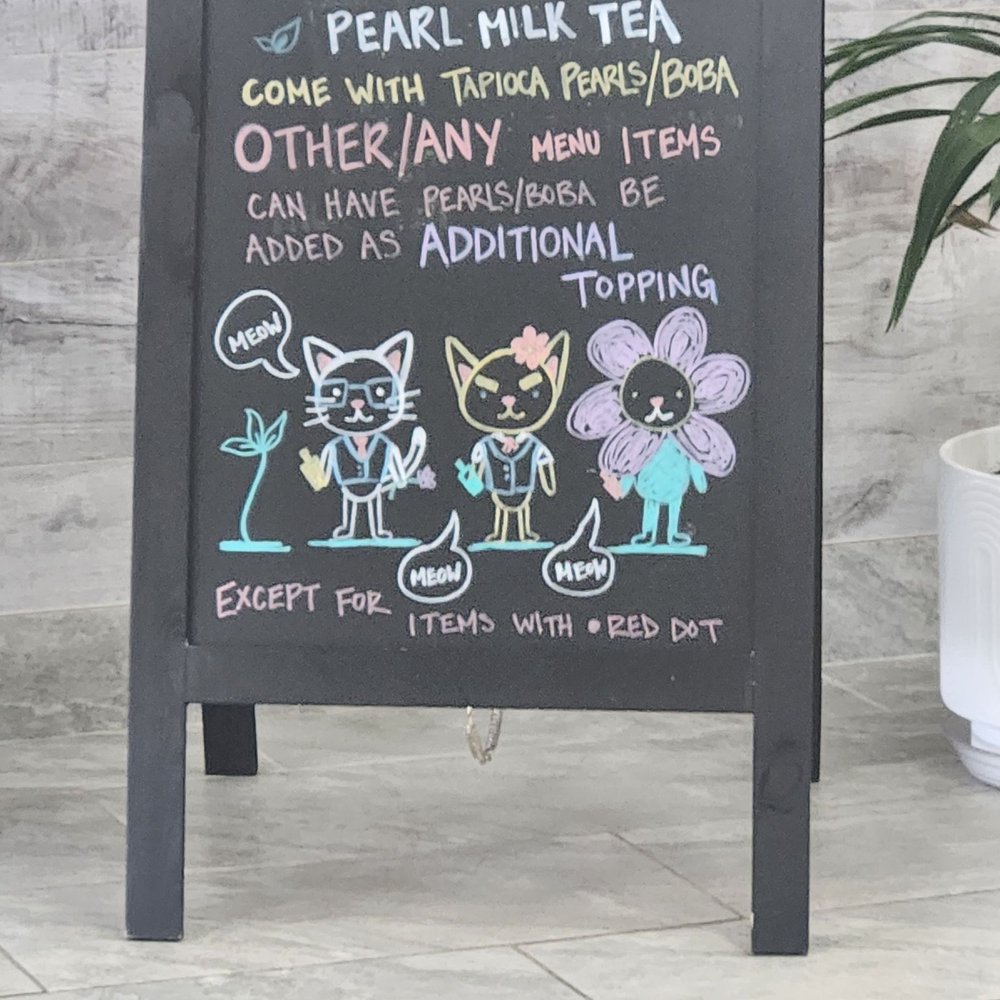 PEARL MILK TEA
COME WITH TAPIOCA PEARLS/BOBA
OTHER/ANY MENU ITEMS
CAN HAVE PEARLS/BOBA BE
ADDED AS ADDITIONAL
TOPPING
MEOW
MEOW
MEOW
EXCEPT FOR
ITEMS WITH • RED DOT